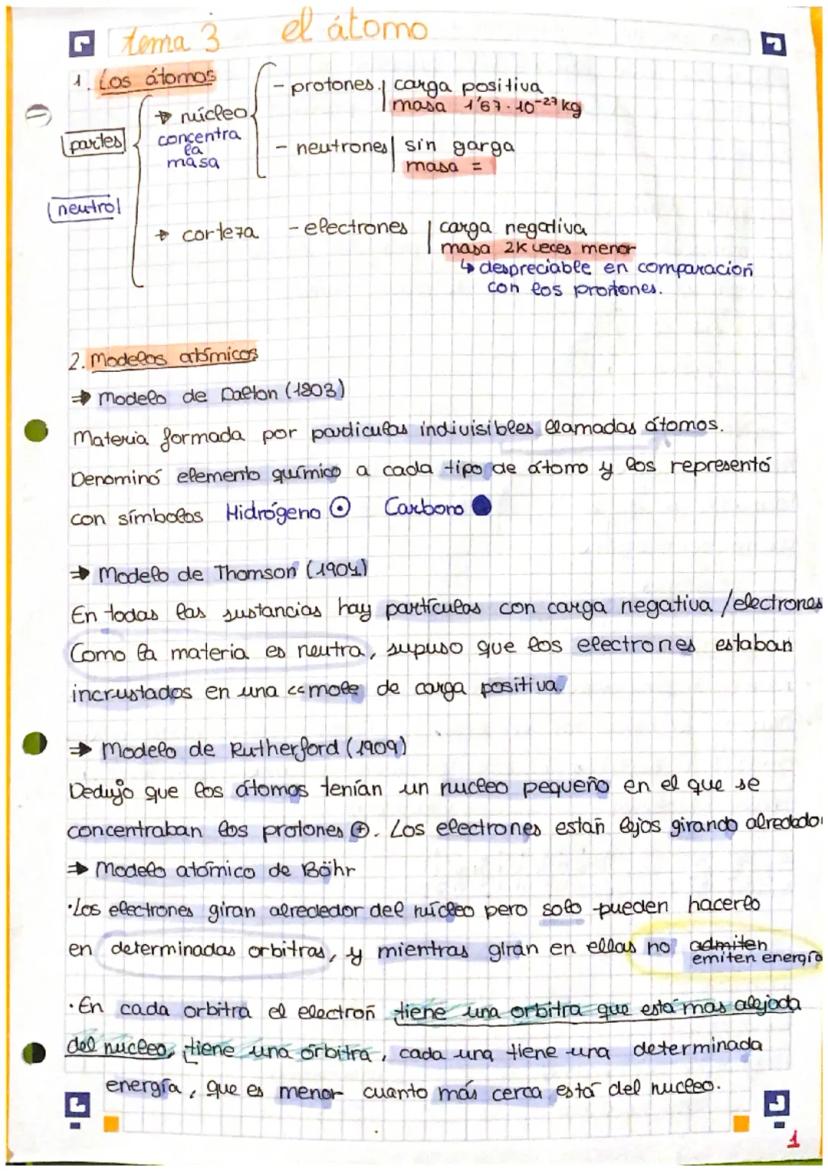 tema 3 el átomo
1. Los átomos
partes
neutro
→ núcleo
concentra
la
masa
- protones
carga positiva
masa 1'67·10⁻²⁷ kg
- neutrones
sin garga
masa =
→ corteza - electrones
carga negativa
masa 2K veces menor
↳ despreciable en comparación
con los protones.
2. Modelos atómicos
→ Modelo de Dalton (1803)
Materia formada por partículas indivisibles llamadas átomos.
Denominó elemento químico a cada tipo de átomo y los representó
con símbolos Hidrógeno ⊙ Carbono ●
→ Modelo de Thomson (1904)
En todas las sustancias hay partículas con carga negativa /electrones
Como la materia es neutra, supuso que los electrones estaban
incrustados en una <<mole de carga positiva.
→ Modelo de Rutherford (1909)
Dedujo que los átomos tenían un nucleo pequeño en el que se
concentraban los protones ⊕. Los electrones están lejos girando alrededo
→ Modelo atómico de Böhr
·Los electrones giran alrededor del núcleo pero solo pueden hacerlo
en determinadas orbitras, y mientras giran en ellas no admiten
emiten energía
·En cada orbitra el electrón tiene una orbitra que está mas alejada
del nucleo, tiene una órbitra, cada una tiene una determinada
energía, que es menor cuanto más cerca está del nucleo.
1